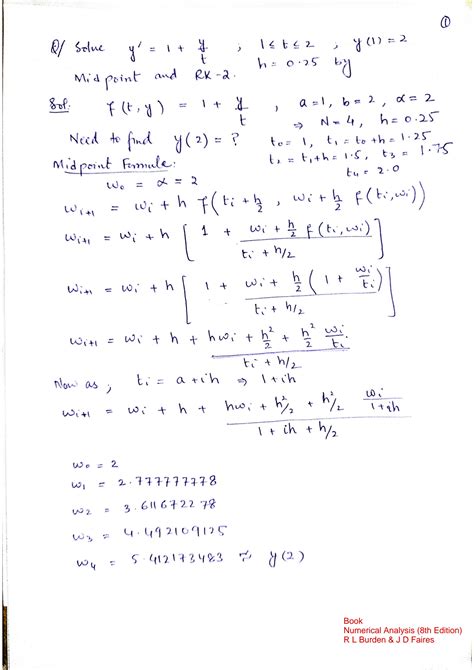 ①
Q/ Solve y' = 1 + y/t , 1 ≤ t ≤ 2 , y(1) = 2
Midpoint and RK-2. h = 0.25 by
Sol: f(t, y) = 1 + y/t , a = 1, b = 2, α = 2
⇒ N = 4, h = 0.25
Need to find y(2) = ? t₀ = 1, t₁ = t₀ + h = 1.25
t₂ = t₁ + h = 1.5, t₃ = 1.75
t₄ = 2.0
Midpoint Formula:
w₀ = α = 2
wᵢ₊₁ = wᵢ + h f(tᵢ + h/2 , wᵢ + h/2 f(tᵢ, wᵢ))
wᵢ₊₁ = wᵢ + h [ 1 + (wᵢ + h/2 f(tᵢ, wᵢ)) / (tᵢ + h/2) ]
wᵢ₊₁ = wᵢ + h [ 1 + (wᵢ + h/2 (1 + wᵢ/tᵢ)) / (tᵢ + h/2) ]
wᵢ₊₁ = wᵢ + h + (hwᵢ + h²/2 + h²/2 wᵢ/tᵢ) / (tᵢ + h/2)
Now as ; tᵢ = a + ih ⇒ 1 + ih
wᵢ₊₁ = wᵢ + h + (hwᵢ + h²/2 + h²/2 wᵢ/(1 + ih)) / (1 + ih + h/2)
w₀ = 2
w₁ = 2.777777778
w₂ = 3.611672278
w₃ = 4.492109125
w₄ = 5.412173483 ≈ y(2)
Book
Numerical Analysis (8th Edition)
R L Burden & J D Faires